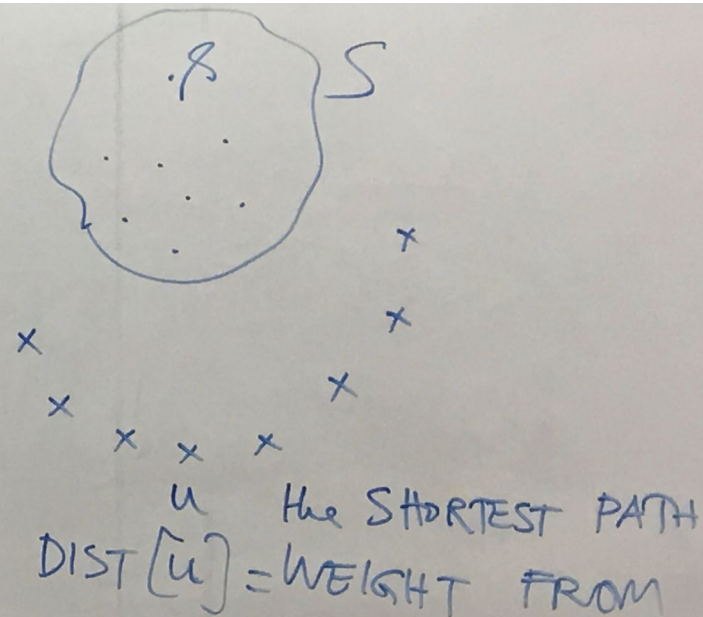 s S
u the SHORTEST PATH
DIST[u] = WEIGHT FROM